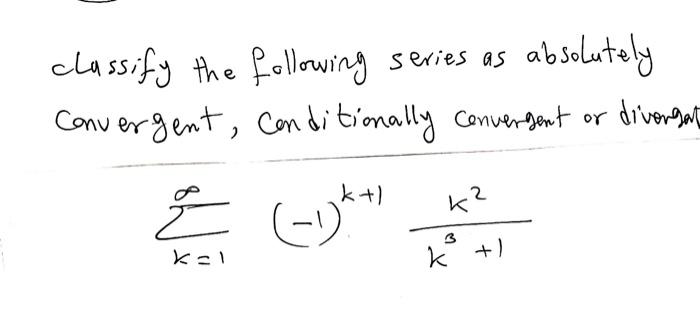 classify the following series as absolutely
convergent, conditionally convergent or divergat
∞
∑ (-1)^{k+1} k^2 / (k^3 + 1)
k=1